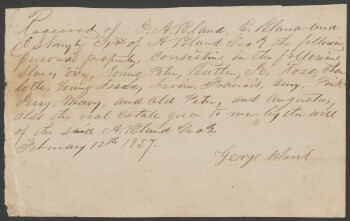 Received of P. A. Bland, E. Bland and
Exrs of A. Bland Decd the following
personal property, consisting in the following
slaves viz, Young Peter, No, Rose, Charlotte,
Young Isaac, Francis, Amy,
Mary, and Old Peter, and Augustus,
also the real estate given to me by the will
of the said A. Bland Decd
February 12th 1857.
George Bland